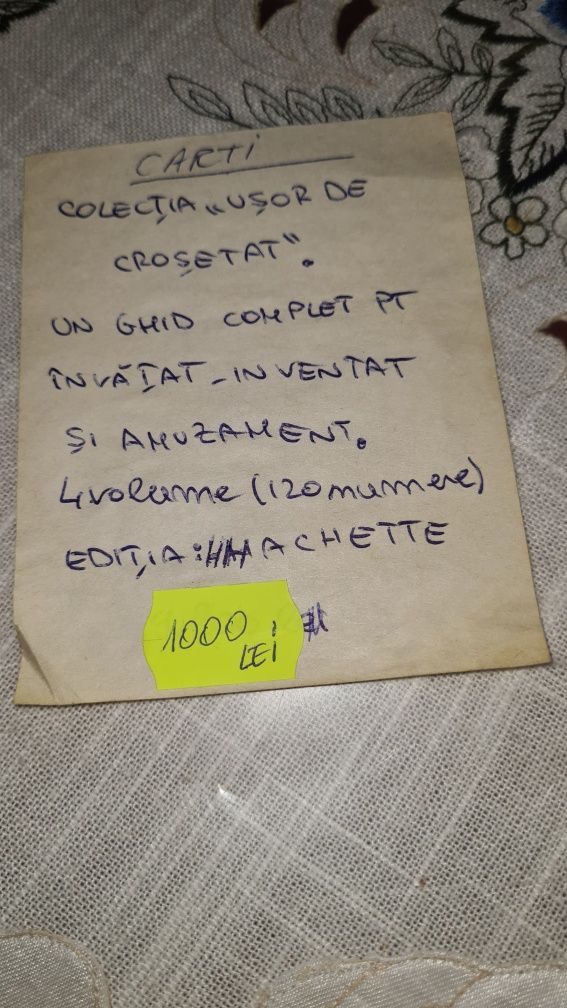 CARTI
COLECȚIA „UȘOR DE
CROȘETAT".
UN GHID COMPLET PT
ÎNVĂȚAT-INVENTAT
ȘI AMUZAMENT.
4 volume (120 numere)
EDIȚIA: HACHETTE
1000
LEI